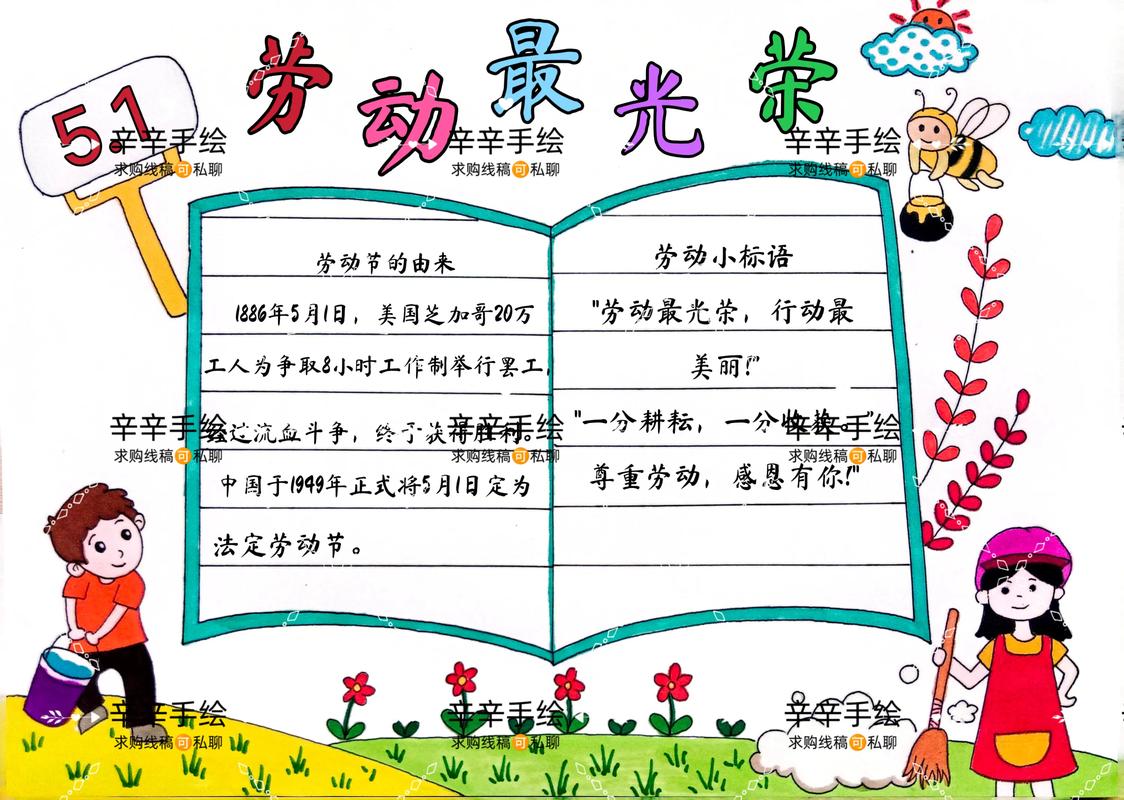 劳动最光荣
5.1
劳动节的由来
1886年5月1日，美国芝加哥20万
工人为争取8小时工作制举行罢工，
经过流血斗争，终于获得胜利。
中国于1949年正式将5月1日定为
法定劳动节。
劳动小标语
"劳动最光荣，行动最
美丽!"
"一分耕耘，一分收获。"
尊重劳动，感恩有你!"
辛辛手绘
求购线稿可私聊
辛辛手绘
求购线稿可私聊
辛辛手绘
求购线稿可私聊
辛辛手绘
求购线稿可私聊
辛辛手绘
求购线稿可私聊
辛辛手绘
求购线稿可私聊
辛辛手绘
求购线稿可私聊
辛辛手绘
求购线稿可私聊
辛辛手绘
求购线稿可私聊